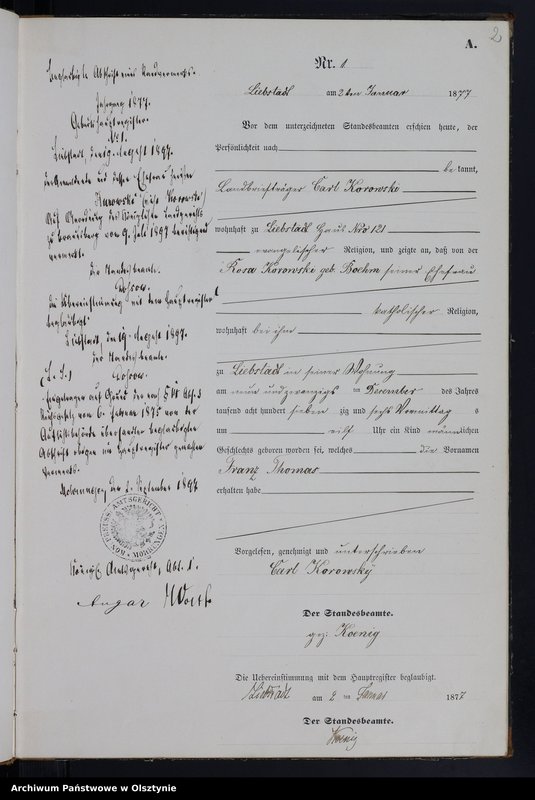 2
A.
Nr. 1
Liebstadt am 2ten Januar 1877
Vor dem unterzeichneten Standesbeamten erschien heute, der
Persönlichkeit nach
bekannt,
Landbriefträger Carl Korowski
wohnhaft zu Liebstadt Haus Nro 121
evangelischer Religion, und zeigte an, daß von der
Rosa Korowski geb. Boehm seiner Ehefrau
katholischer Religion,
wohnhaft bei ihm
zu Liebstadt in seiner Wohnung
am neun und zwanzigsten Dezember des Jahres
tausend acht hundert siebenzig und sechs Vormittags
um eilf Uhr ein Kind männlichen
Geschlechts geboren worden sei, welches die Vornamen
Franz Thomas
erhalten habe
Vorgelesen, genehmigt und unterschrieben
Carl Korowsky
Der Standesbeamte.
gez: Koenig
Die Uebereinstimmung mit dem Hauptregister beglaubigt.
Liebstadt am 2ten Januar 1877
Der Standesbeamte.
Koenig
Beglaubigte Abschrift eines Randvermerks.
Jahrgang 1877.
Geburtshauptregister.
No 1.
Liebstadt, den 19. August 1897.
Kurowski
Auf Anordnung des Königlichen Landgerichts
zu Braunsberg vom 9. Juli 1897 berichtigend
vermerkt.
Der Standesbeamte.
Die Uebereinstimmung mit dem Hauptregister
beglaubigt.
Liebstadt, den 19. August 1897.
Der Standesbeamte.
(L. S.)
Eingetragen auf Grund der von
vom 6. Februar 1875 von der
Aufsichtsbehörde
Mohrungen, den 2. September 1897
KÖN. PREUSS. AMTSGERICHT MOHRUNGEN
Königl. Amtsgericht, Abt. 1.
Archiwum Państwowe w Olsztynie